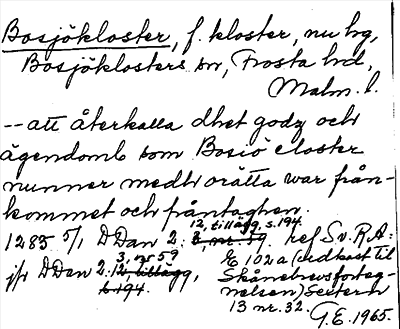 Bosjökloster, f. kloster, nu hg,
Bosjöklosters sn, Frosta hd,
Malm. l.
-- att återkalla dhet godz och
ägendomb som Bosiö closter
nunner medh orätta war från-
kommet och fråntaghen.
12, tillägg, s. 194.
1285 5/1 DDan 2: 3, nr 59. ref Sv. R.A:
3, nr 59
jfr DDan 2: 12, tillägg,
s. 194.
E 102 a (utkast til
Skånebrevsforteg-
nelsen) Sextern
13 nr. 32.
G.E. 1965.